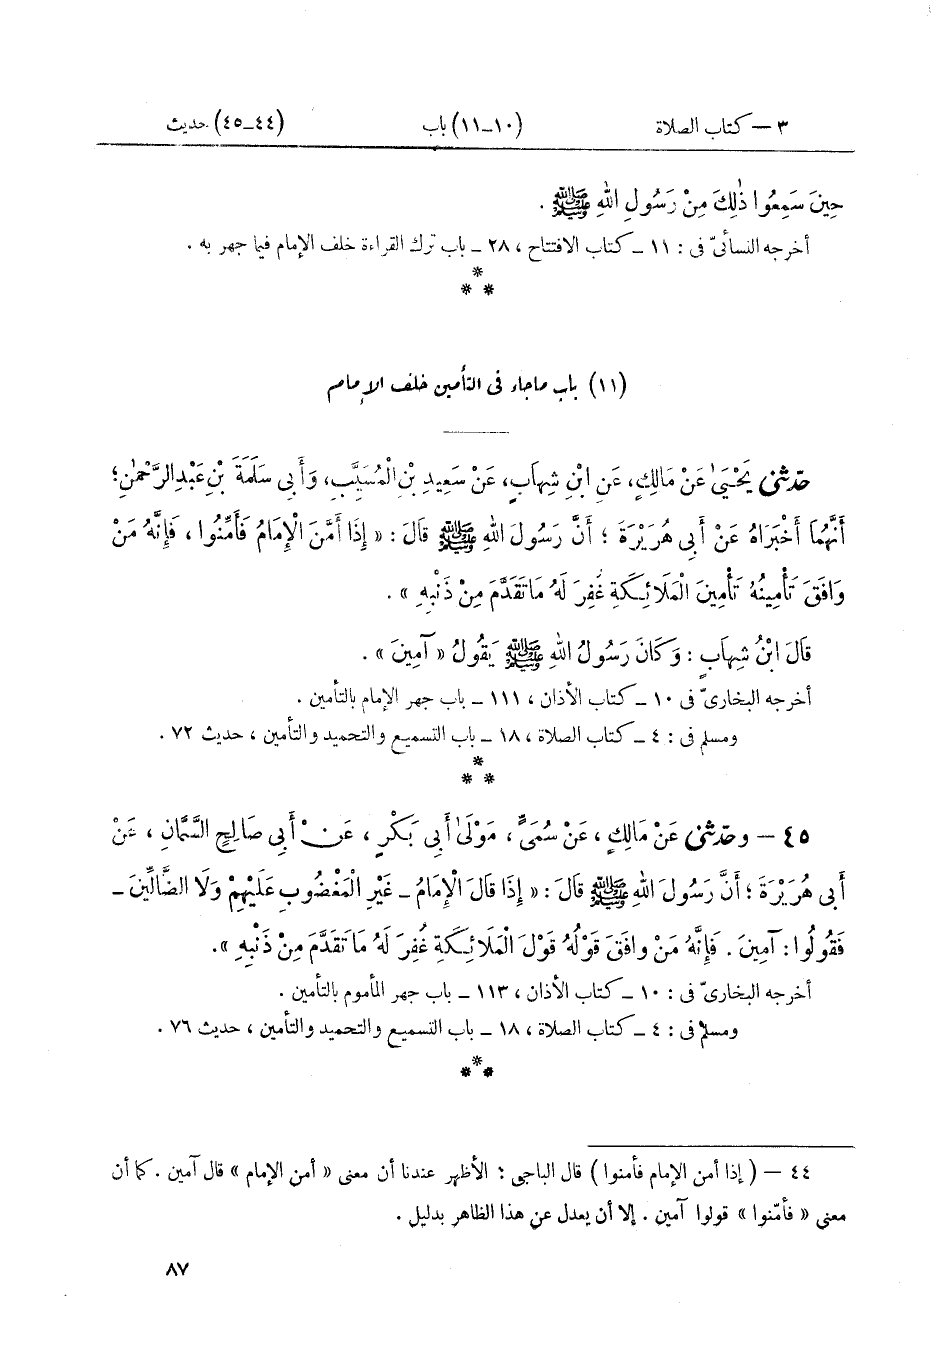 ٣ – كتاب الصلاة (١٠–١١) باب (٤٤–٤٥) حديث
حِينَ سَمِعُوا ذٰلِكَ مِنْ رَسُولِ اللهِ ﷺ .
أخرجه النسائىّ فى : ١١ – كتاب الافتتاح ، ٢٨ – باب ترك القراءة خلف الإمام فيما جهر به .
*
* *
(١١) باب ماجاء فى التأمين خلف الإمام
حدّثنى يَحْيَىٰ عَنْ مَالِكٍ، عَنِ ابْنِ شِهَابٍ، عَنْ سَعِيدِ بْنِ الْمُسَيَّبِ، وَأَبِى سَلَمَةَ بْنِ عَبْدِ الرَّحْمٰنِ؛
أَنَّهُمَا أَخْبَرَاهُ عَنْ أَبِى هُرَيْرَةَ ؛ أَنَّ رَسُولَ اللهِ ﷺ قَالَ : « إِذَا أَمَّنَ الْإِمَامُ فَأَمِّنُوا ، فَإِنَّهُ مَنْ
وَافَقَ تَأْمِينُهُ تَأْمِينَ الْمَلَائِكَةِ غُفِرَ لَهُ مَا تَقَدَّمَ مِنْ ذَنْبِهِ » .
قَالَ ابْنُ شِهَابٍ : وَكَانَ رَسُولُ اللهِ ﷺ يَقُولُ « آمِينَ » .
أخرجه البخارىّ فى ١٠ – كتاب الأذان ، ١١١ – باب جهر الإمام بالتأمين .
ومسلم فى : ٤ – كتاب الصلاة ، ١٨ – باب التسميع والتحميد والتأمين ، حديث ٧٢ .
*
* *
٤٥ – وحدّثنى عَنْ مَالِكٍ ، عَنْ سُمَىٍّ ، مَوْلَىٰ أَبِى بَكْرٍ ، عَنْ أَبِى صَالِحٍ السَّمَّانِ ، عَنْ
أَبِى هُرَيْرَةَ ؛ أَنَّ رَسُولَ اللهِ ﷺ قَالَ : « إِذَا قَالَ الْإِمَامُ – غَيْرِ الْمَغْضُوبِ عَلَيْهِمْ وَلَا الضَّالِّينَ –
فَقُولُوا : آمِينَ . فَإِنَّهُ مَنْ وافَقَ قَوْلُهُ قَوْلَ الْمَلَائِكَةِ غُفِرَ لَهُ مَا تَقَدَّمَ مِنْ ذَنْبِهِ » .
أخرجه البخارىّ فى : ١٠ – كتاب الأذان ، ١١٣ – باب جهر المأموم بالتأمين .
ومسلم فى : ٤ – كتاب الصلاة ، ١٨ – باب التسميع والتحميد والتأمين ، حديث ٧٦ .
*
* *
٤٤ – ( إذا أمن الإمام فأمنوا ) قال الباجى : الأظهر عندنا أن معنى « أمن الإمام » قال آمين . كما أن
معنى « فأمّنوا » قولوا آمين . إلا أن يعدل عن هذا الظاهر بدليل .
٨٧